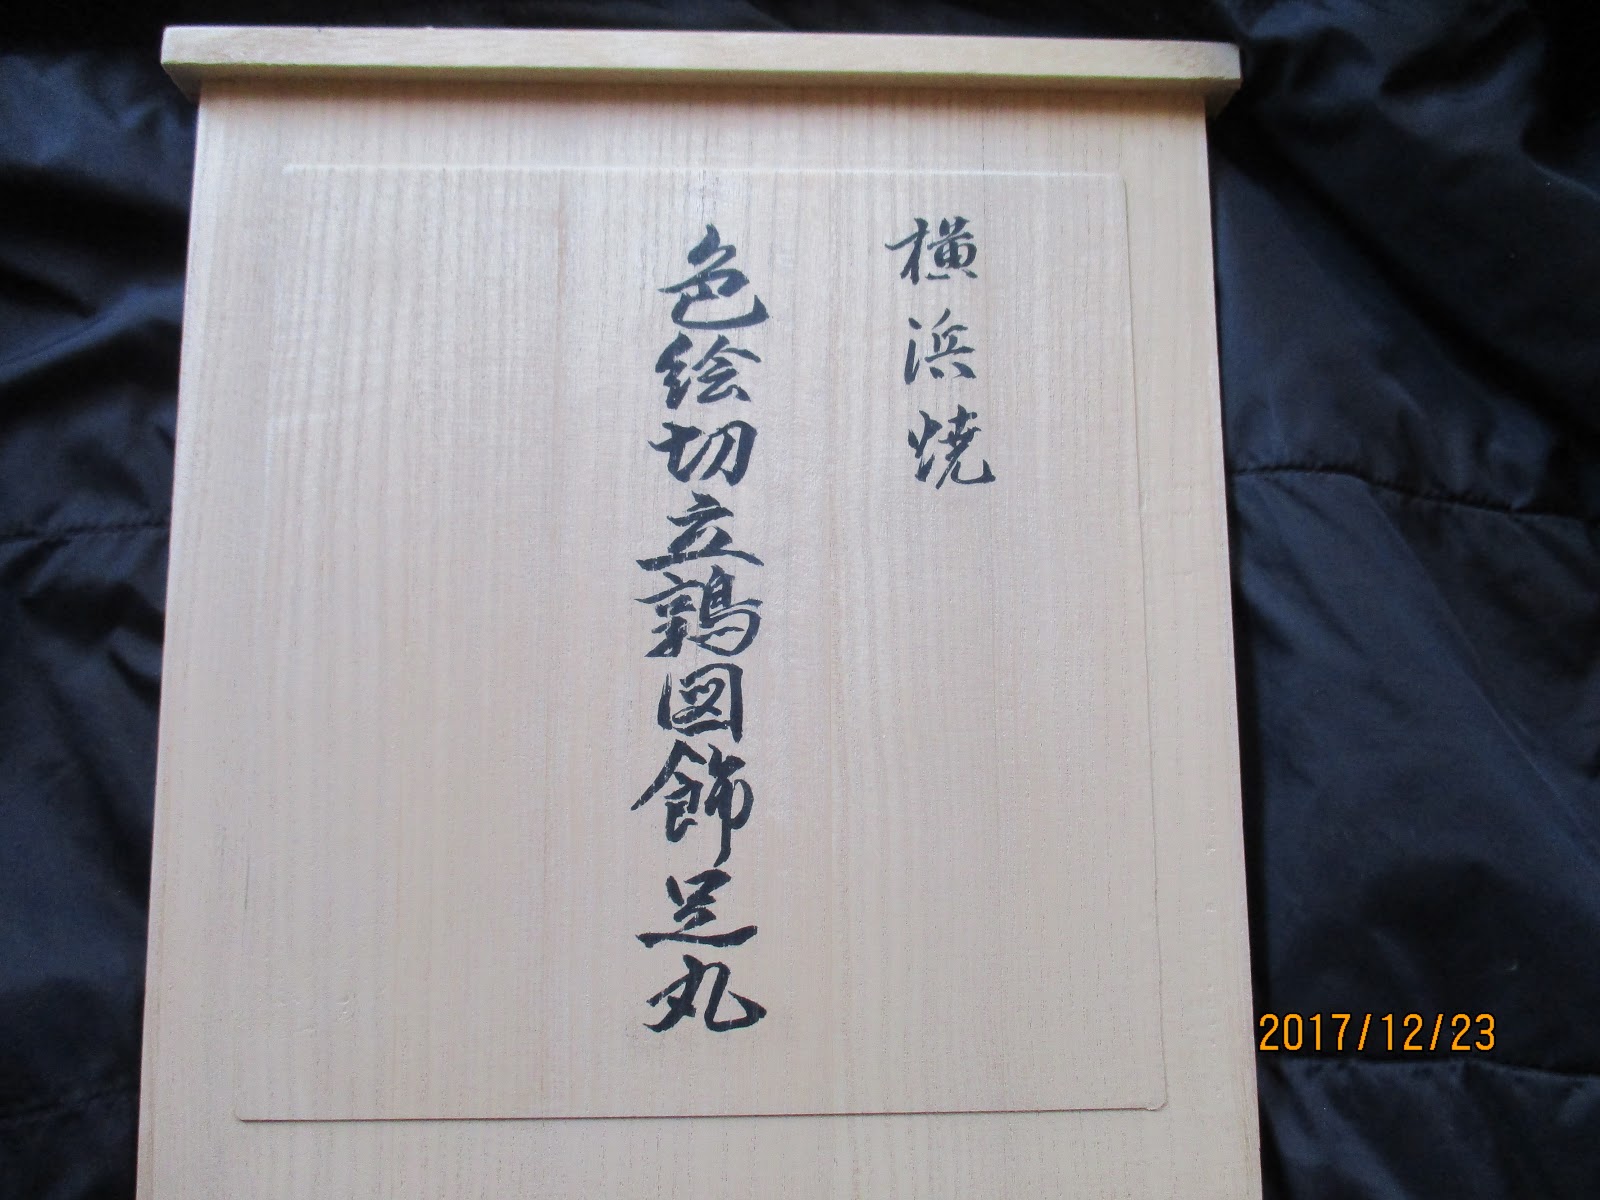 横浜焼
色絵切立鶉図飾足丸
2017/12/23